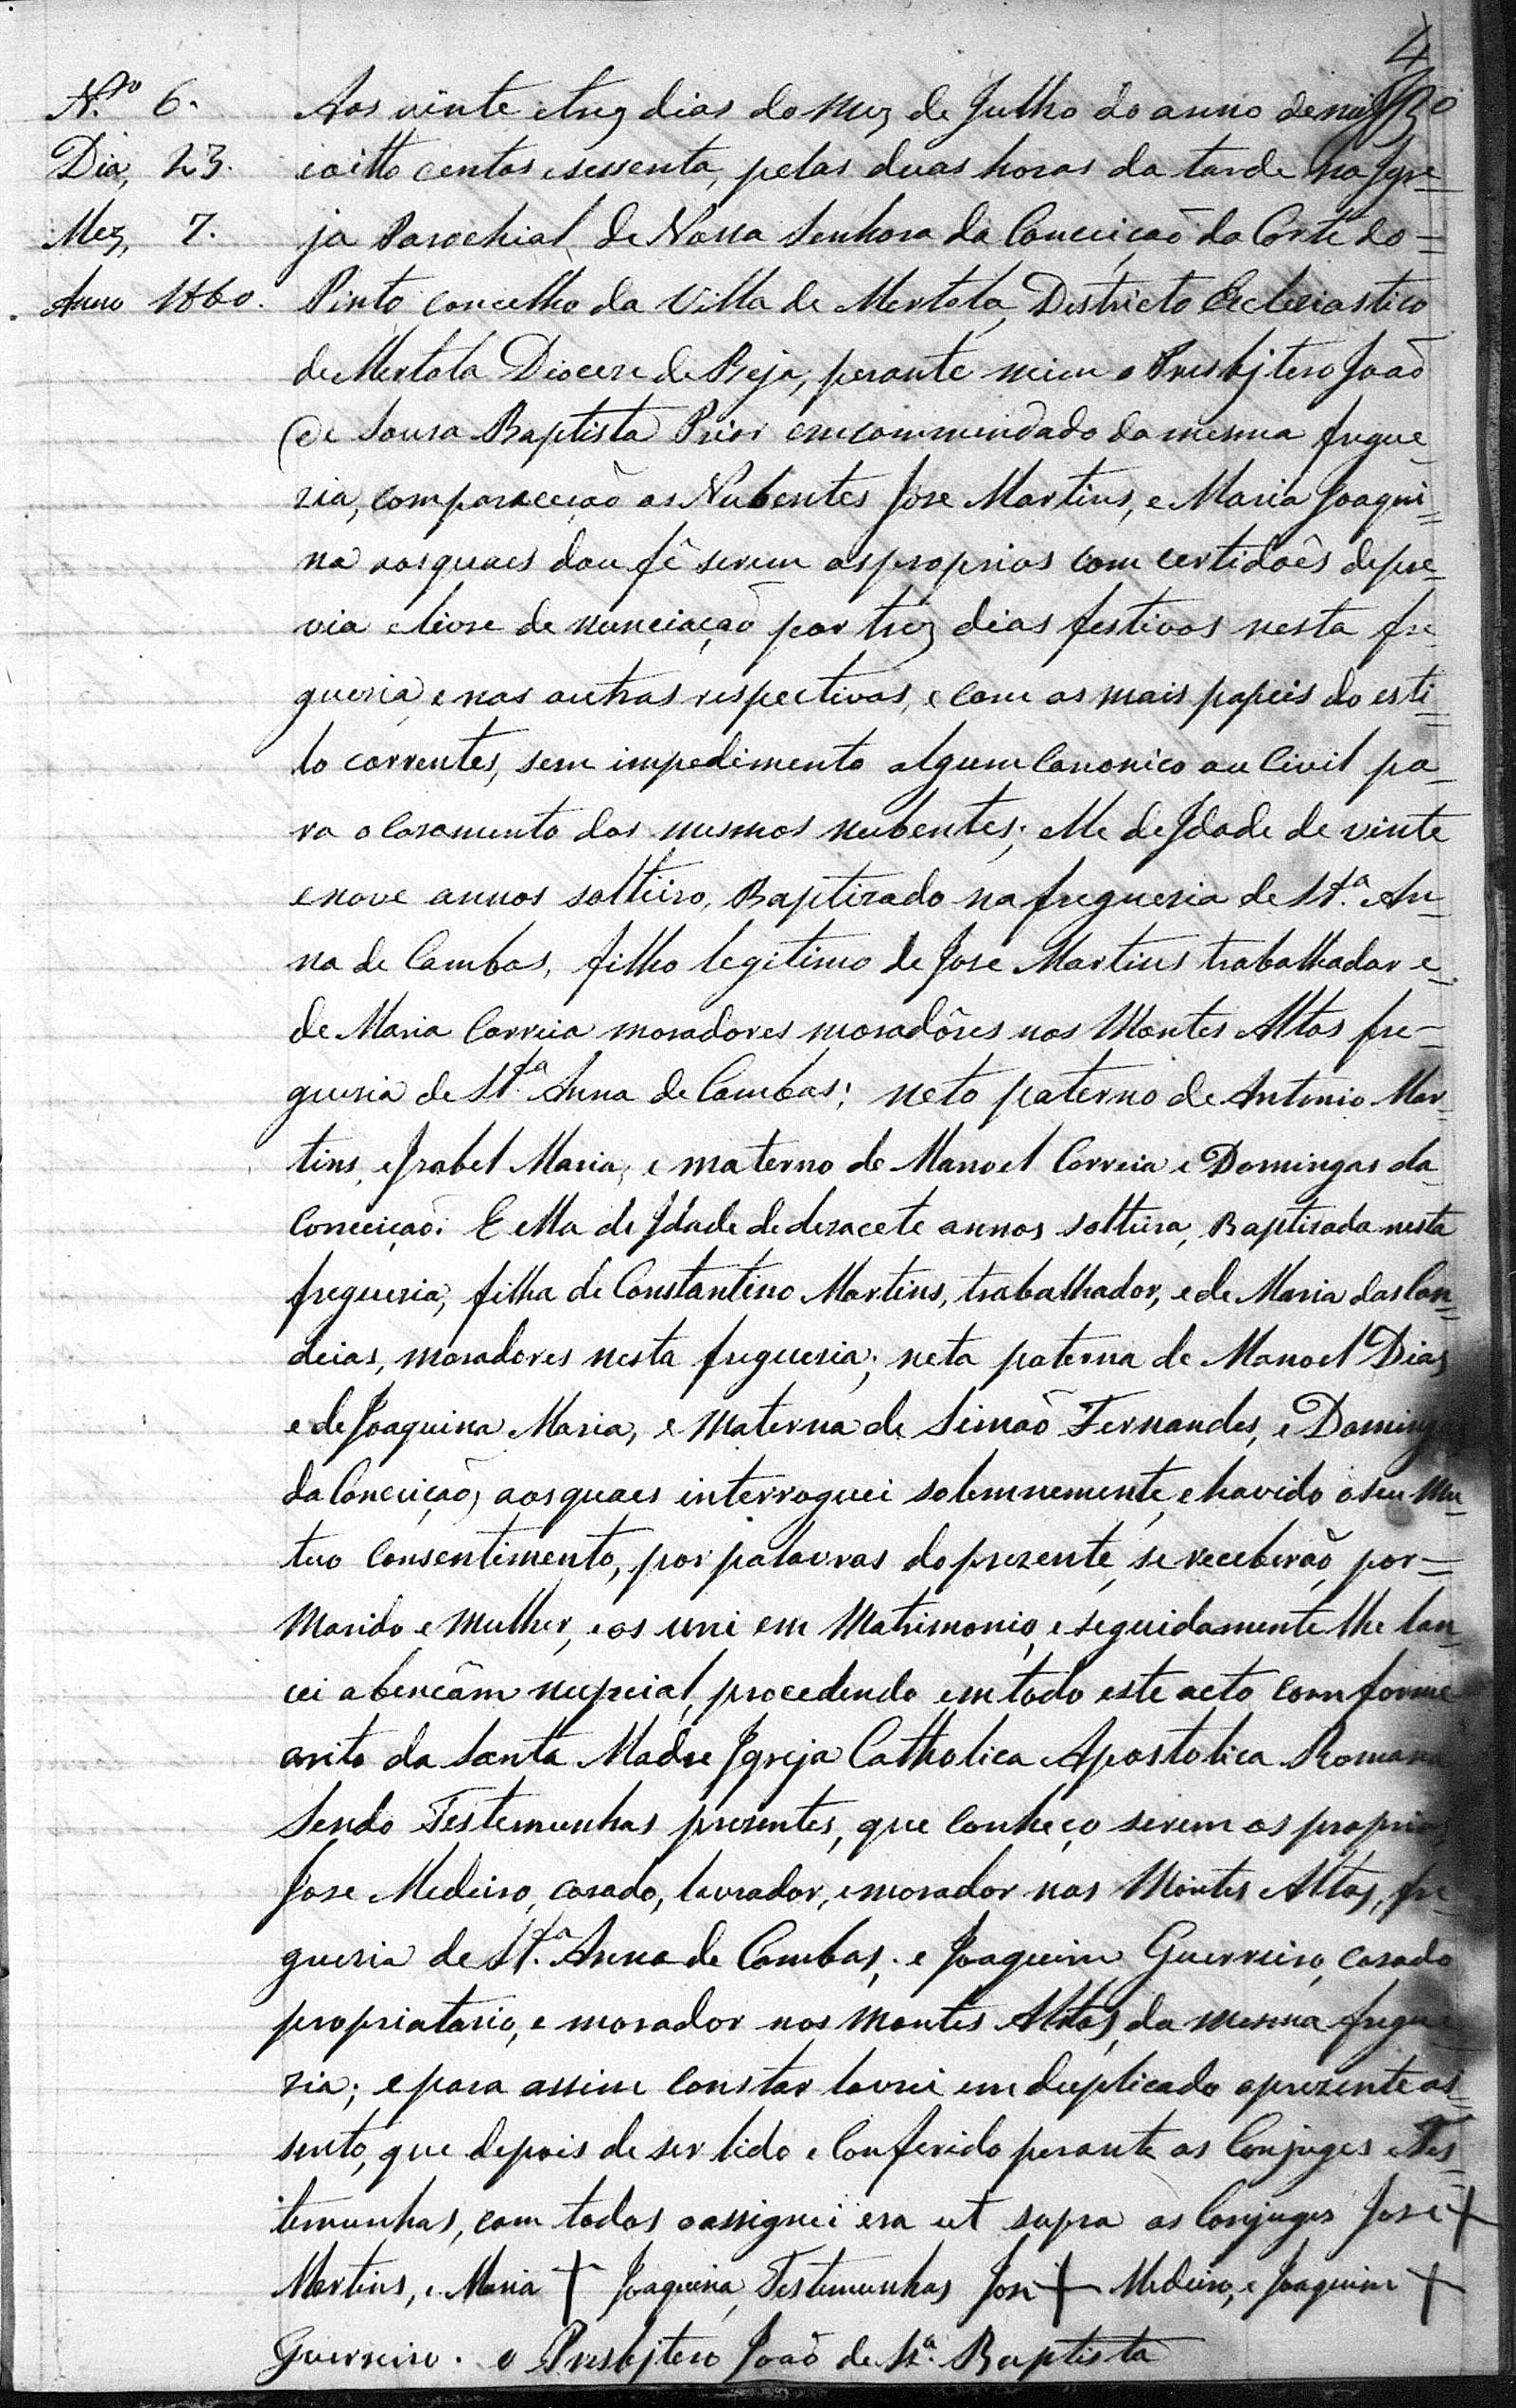 4
N.º 6.
Dia, 23.
Mez, 7.
Anno 1860.
Aos vinte etrez dias do mez de Julho do anno de mil
eoitto centos esessenta, pelas duas horas da tarde na Jgre_
ja Parochial de Nossa Senhora da Conceiçaõ da Corte do=
Pinto concelho da Villa de Mertola, Destricto Ecclesiastico
de Mertola Diocese de Beja, perante mim o Presbjtero Joaõ
de Sousa Baptista Prior emcommendado da mesma fregue_
zia, comparecçaõ os Nubentes Jose Martins, e Maria Joaqui=
na aos quaes dou fê serem os proprios com certidoês de pre=
via e livre de nunciaçaõ por trez dias festivos nesta fre_
guezia, e nas outras respectivas, e com os mais papeis do esti=
lo correntes, sem impedimento algum Canonico ou Civil pa_
ra o Casamento dos mesmos nubentes; elle de Jdade de vinte
enove annos soltteiro, Baptizado na freguezia de St.ª An_
na de Cambas, filho legitimo de Jose Martins trabalhador e_
de Maria Correia moradores moradôres nos Montes Altos fre_
guezia de St.ª Anna de Cambas; neto paterno de Antonio Mar_
tins, e Jzabel Maria; e materno de Manoel Correia e Domingas da
Conceiçaõ. E ella de Jdade de dezacete annos soltteira, Baptizada nesta
freguezia; filha de Constantino Martins, trabalhador, e de Maria das Can=
deias, moradores nesta freguezia; neta paterna de Manoel Dias
e de Joaquina Maria, e Materna de Simaõ Fernandes, e Domingas
da Conceiçaõ, aos quaes interroguei solemnemente, ehavido o seu Mu_
tuo Consentimento, por palavras do prezente, se receberaõ, por=
Marido e Mulher, e os uni em Matrimonio, e seguidamente lhe lan_
cei abencâm nupcial, procedendo em todo este acto comforme
orito da Santa Madre Jgreja Catholica Apostolica Romana
Sendo Testemunhas prezentes, que Conheço serem os proprios
Jose Medeiro, casado, lavrador, e morador nos Montes Altos, fre_
guezia de St.ª Anna de Cambas; e Joaquim Guerreiro, casado
propriatario, e morador nos Montes Altos, da mesma fregue_
zia; e para assim Constar lavrei em duplicado o prezente as=
sento, que depois de ser lido e Conferido perante os Conjuges e Tes=
temunhas, com todos o assignei era ut supra os Conjuges Jose +
Martins, e Maria + Joaquina, Testemunhas Jose + Medeiro, e Joaquim +
Guerreiro. O Presbjtero Joaõ de Sz.ª Baptista